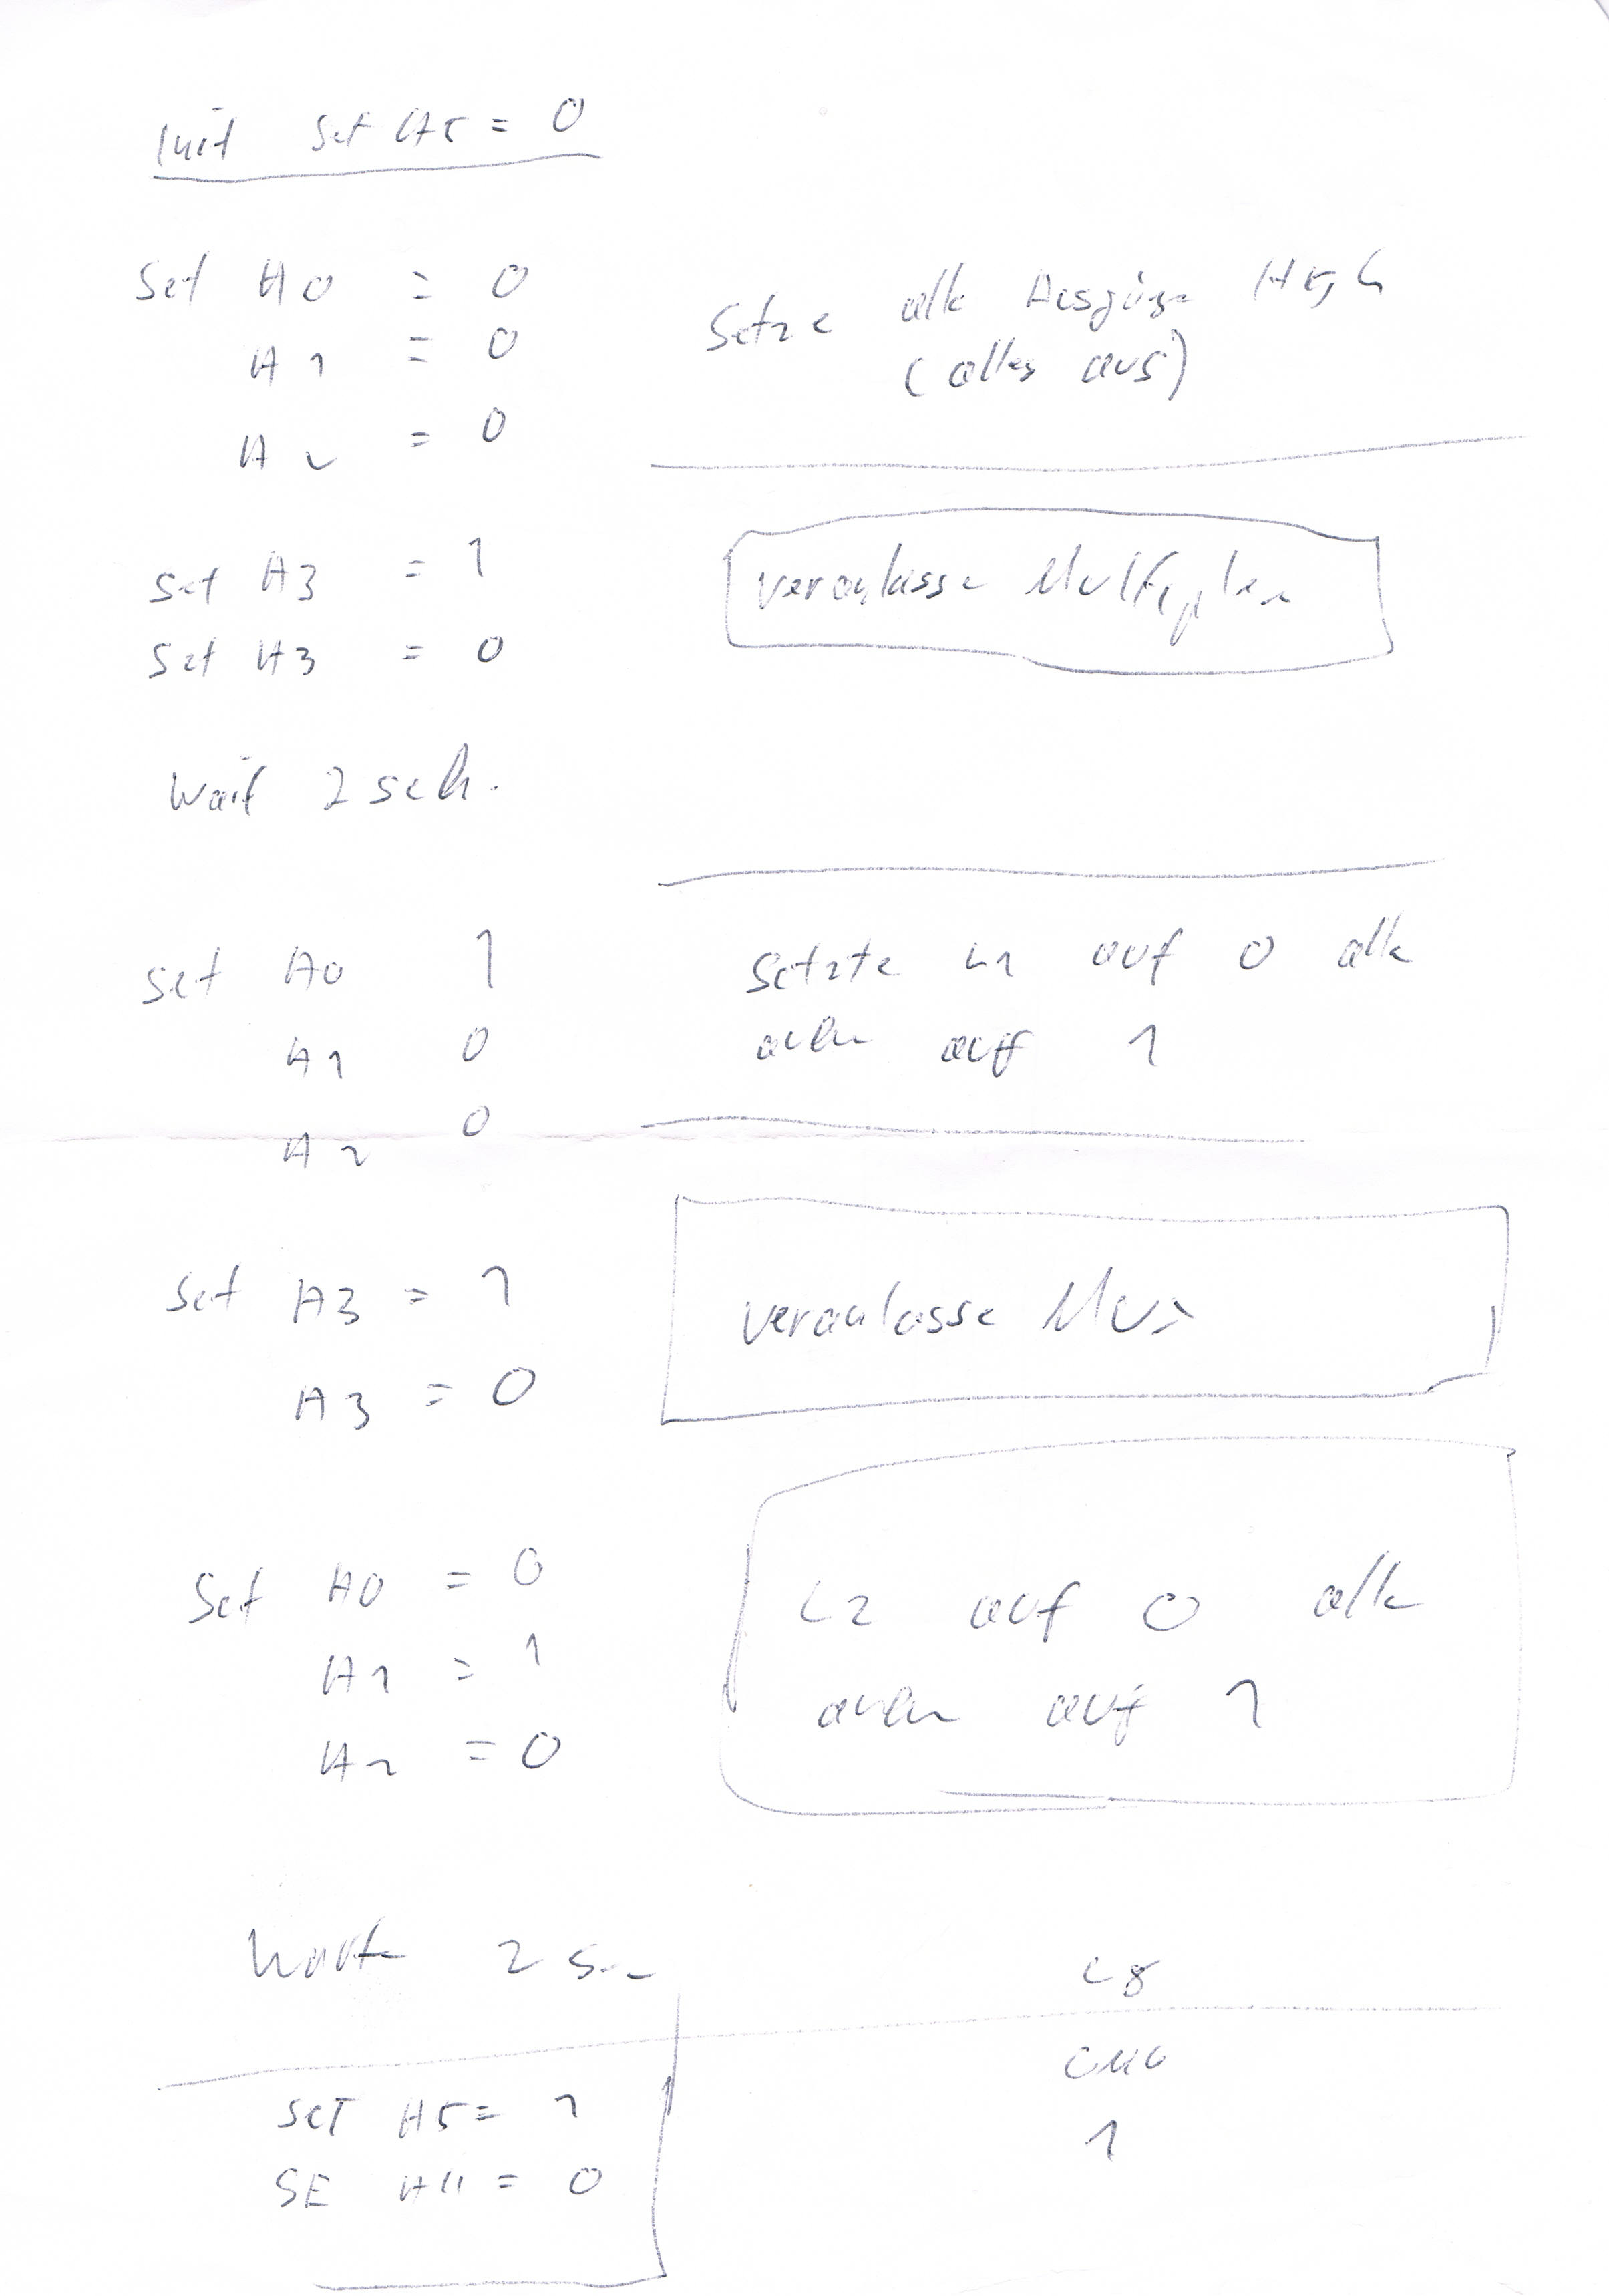 Init Set A5 = 0
Set A0 = 0
A1 = 0
A2 = 0
Setze alle Ausgänge High
(alles aus)
Set A3 = 1
Set A3 = 0
veranlasse Multiplex
Wait 2 sek.
Set A0 1
A1 0
A2 0
Setzte L1 auf 0 alle
auf 1
Set A3 = 1
A3 = 0
veranlasse Mux
Set A0 = 0
A1 = 1
A2 = 0
L2 auf 0 alle
auf 1
Warte 2
L8
SET A5 = 1
SE = 0
1